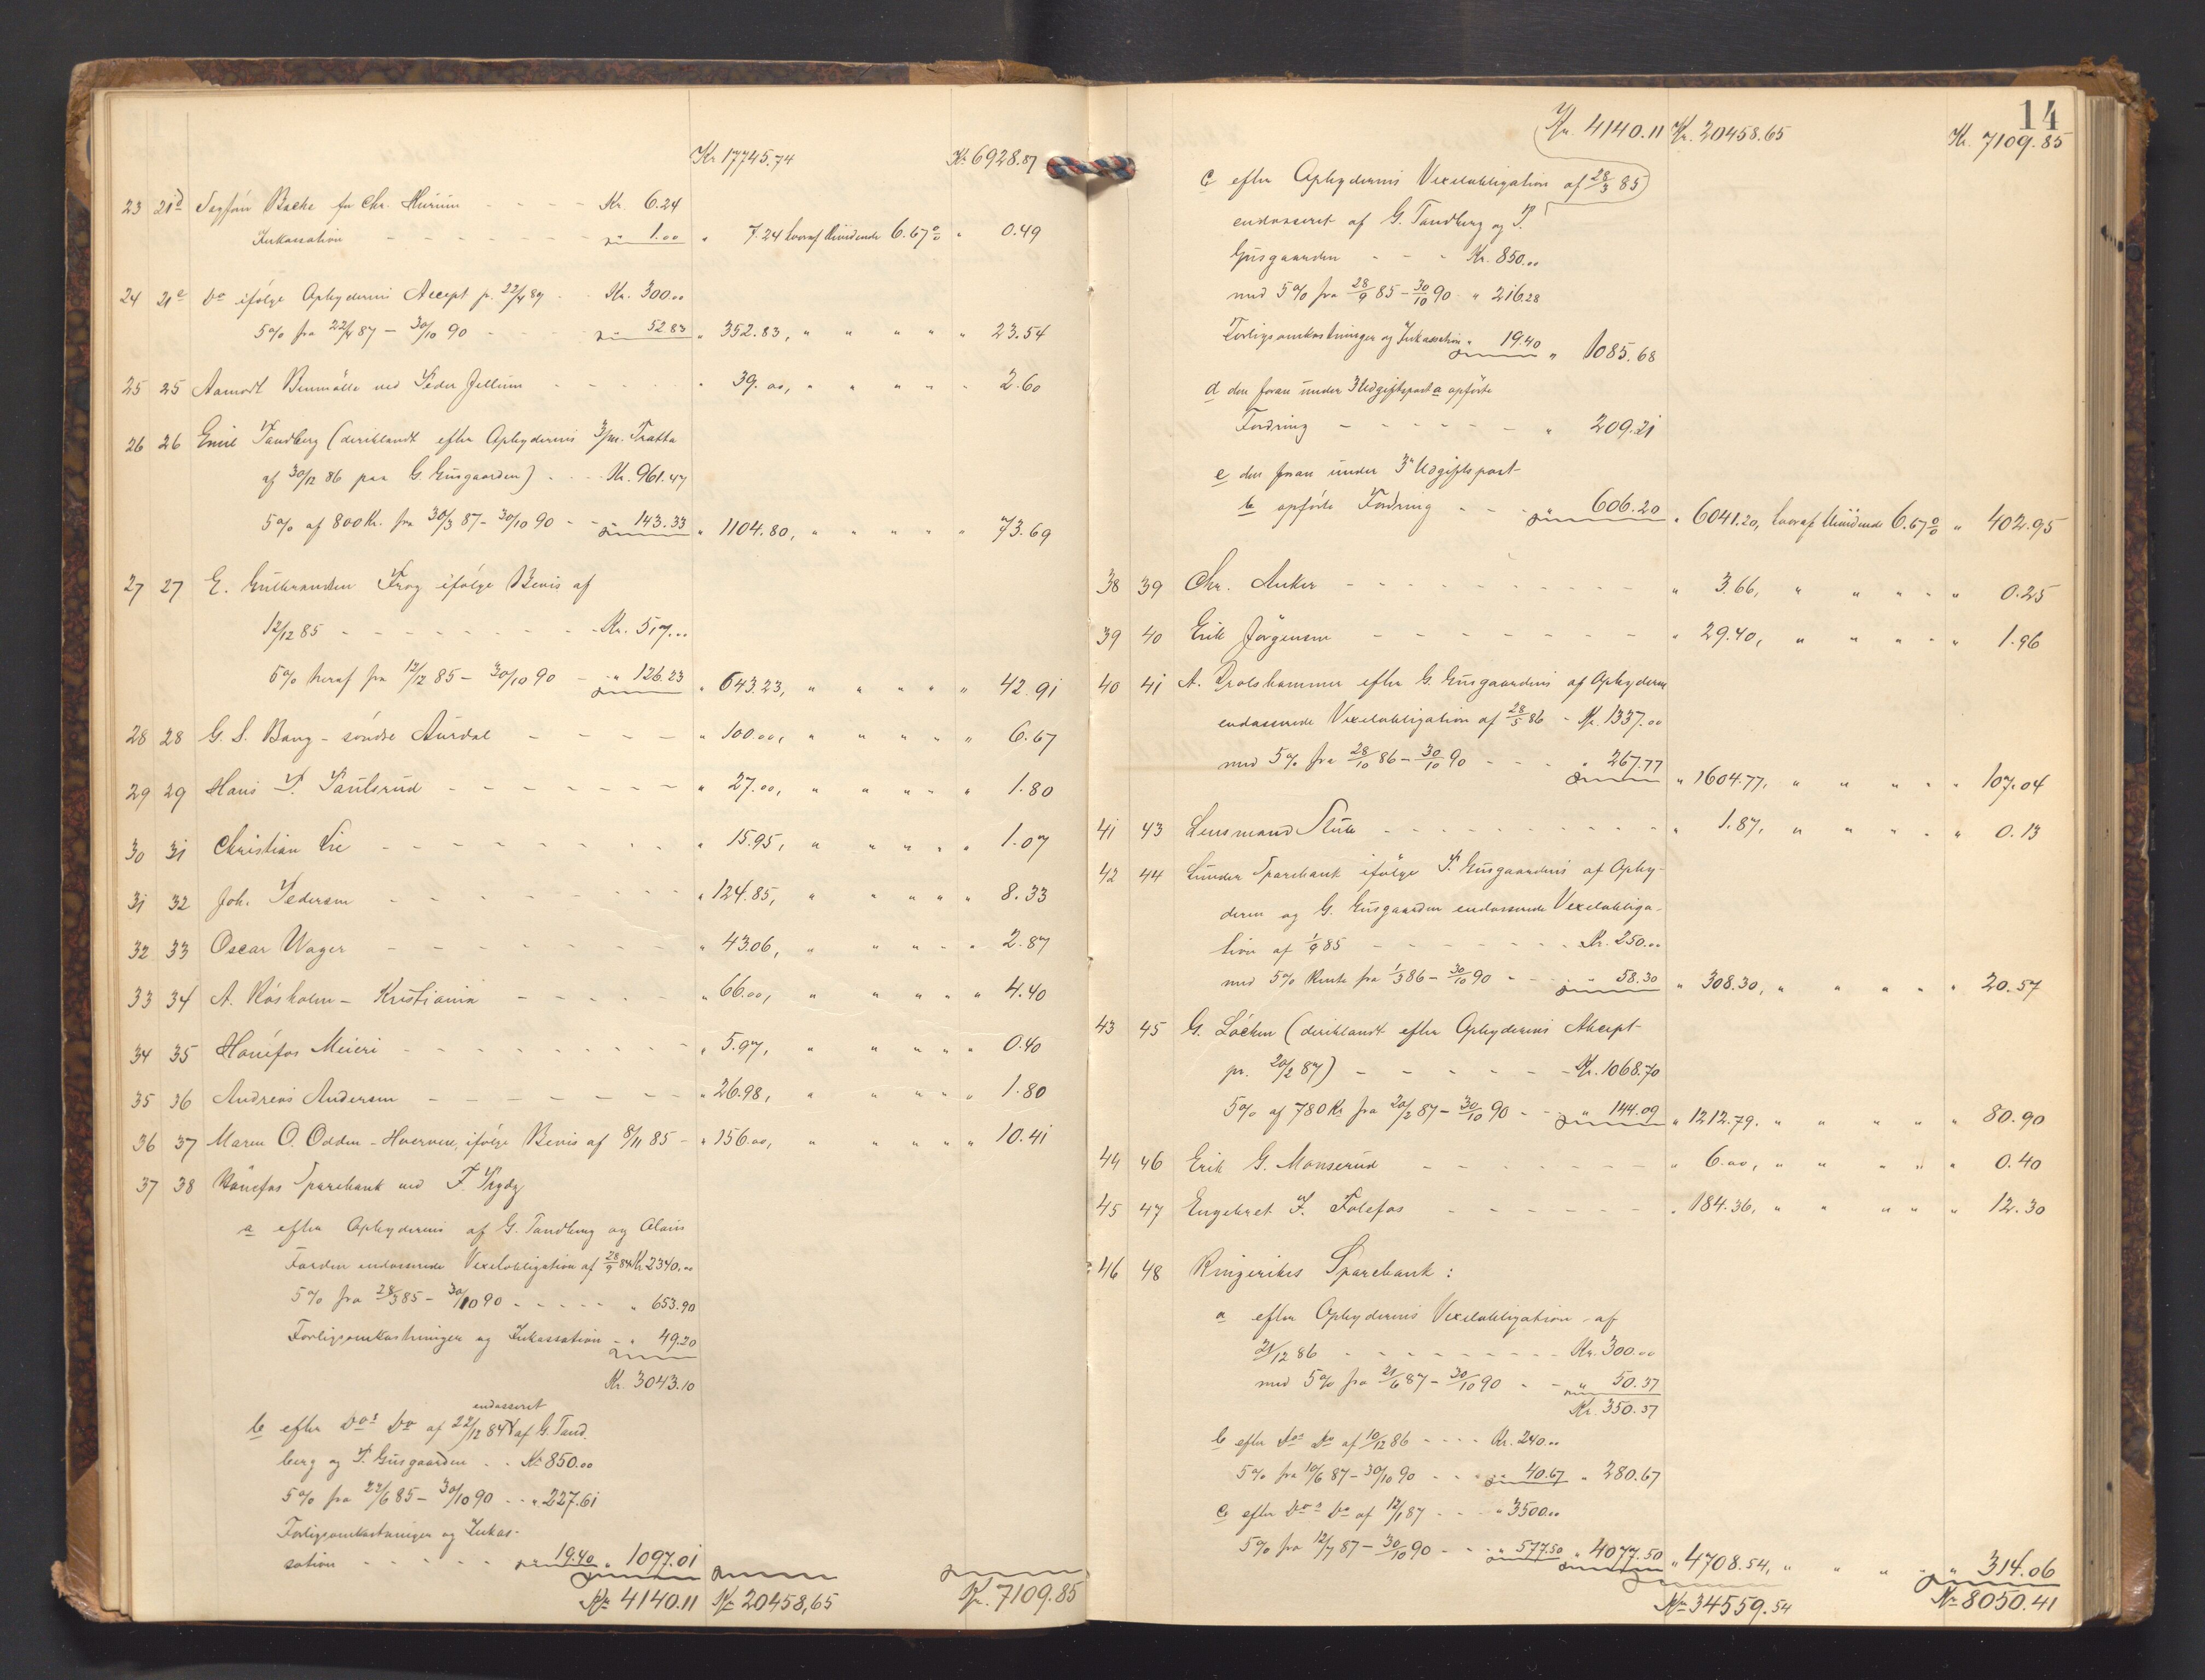 Kr 17745.74 Kr 6928.87
23 21d Sagfører Bache for Chr. Hurum - - - - Kr. 6.24
Inkassation - - - - - - " 1.00 " 7.24 hvoraf Dividende 6.67% " 0.49
24 21e Do ifølge Ophyderens Accept pr. 22/4 87 - - Kr. 300.00
5% fra 22/4 87 - 30/10 90 - - - " 52.83 " 352.83, " " " " " 23.54
25 25 Aamodt Benmølle ved Peder Jellum - - - - " 39.00, " " " " " 2.60
26 26 Emil Tandberg (deriblandt efter Ophyderens 3/m. Tratta
af 30/12 86 paa G. Gusgaarden) - - - Kr. 961.47
5% af 800 Kr. fra 30/3 87 - 30/10 90 - - " 143.33 " 1104.80, " " " " " 73.69
27 27 E. Gulbrandsen Frog ifølge Bevis af
12/12 85 - - - - - - - - Kr. 517.00
5% heraf fra 12/12 85 - 30/10 90 - " 126.23 " 643.23, " " " " " 42.91
28 28 G. S. Bang - søndre Aurdal - - - - " 100.00, " " " " " 6.67
29 29 Hans P. Paulsrud - - - - - - - " 27.00, " " " " " 1.80
30 31 Christian Lie - - - - - - - - " 15.95, " " " " " 1.07
31 32 Joh. Pedersen - - - - - - - - " 124.85, " " " " " 8.33
32 33 Oscar Wager - - - - - - - " 43.06, " " " " " 2.87
33 34 A. Røsholm - Kristiania - - - - - " 66.00, " " " " " 4.40
34 35 Hønefos Meieri - - - - - - - - " 5.97, " " " " " 0.40
35 36 Andreas Andersen - - - - - - - " 26.98, " " " " " 1.80
36 37 Maren O. Odden - Hverven, ifølge Bevis af 8/11 85 - " 156.00, " " " " " 10.41
37 38 Hønefos Sparebank ved F. Trydz
a efter Ophyderens af G. Tandberg og Claus
Færden endosserede Vexelobligation af 28/9 84 Kr 2340.00
5% fra 28/3 85 - 30/10 90 - - - - - " 653.90
Forligsomkostninger og Inkassation - " 49.20
Kr. 3043.10
endosseret
b efter Dos Do af 22/12 84 af G. Tand-
berg og P. Gusgaarden - - Kr 850.00
5% fra 22/6 85 - 30/10 90 - - " 227.61
Forligsomkostninger og Inkas-
sation - - - - - " 19.40 " 1097.01
Kr 4140.11 Kr 20458,65 Kr. 7109.85
14
Kr. 4140.11 Kr. 20458.65 Kr. 7109.85
c efter Ophyderens Vexelobligation af 28/3 85
endosseret af G. Tandberg og P.
Gusgaarden - - - Kr. 850.00
med 5% fra 28/9 85 - 30/10 90 - " 216.28
Forligsomkostninger og Inkassation " 19.40 " 1085.68
d den foran under 3 Udgiftspost a opførte
Fordring - - - - - - " 209.21
e den foran under 3 Udgiftspost
b opførte Fordring - - - " 606.20 " 6041.20, hvoraf Dividende 6.67% " 402.95
38 39 Chr. Anker - - - - - - - - - - " 3.66, " " " " " 0.25
39 40 Erik Jørgensen - - - - - - - - " 29.40, " " " " " 1.96
40 41 A. Drolshammer efter G. Gusgaardens af Ophyderen
endosserede Vexelobligation af 28/5 86 - Kr. 1337.00
med 5% fra 28/10 86 - 30/10 90 - - - " 267.77 " 1604.77, " " " " " 107.04
41 43 Lensmand Stub - - - - - - - - - - " 1.87, " " " " " 0.13
42 44 Lunder Sparebank ifølge P. Gusgaardens af Ophy-
deren og G. Gusgaarden endosserede Vexelobliga-
tion af 1/9 85 - - - - - - - Kr. 250.00
med 5% Rente fra 1/3 86 - 30/10 90 - - " 58.30 " 308.30, " " " " " 20.57
43 45 G. Løcken (deriblandt efter Ophyderens Akcept
pr. 20/2 87) - - - - - - - Kr. 1068.70
5% af 780 Kr fra 20/2 87 - 30/10 90 - - " 144.09 " 1212.79. " " " " " 80.90
44 46 Erik G. Monserud - - - - - - - - " 6.00, " " " " " 0.40
45 47 Engebret F. Folefos - - - - - - - " 184.36, " " " " " 12.30
46 48 Ringerikes Sparebank :
a efter Ophyderens Vexelobligation af
21/12 86 - - - - - - - - - Kr. 300.00
med 5% fra 21/6 87 - 30/10 90 - - " 50.37
Kr. 350.37
b efter Dos Do af 10/12 86 - - - - Kr. 240.00
5% fra 10/6 87 - 30/10 90 - - - " 40.67 " 280.67
c efter Dos Do af 12/1 87 - - - " 3500.00
5% fra 12/7 87 - 30/10 90 - - " 577.50 " 4077.50 " 4708.54, " " " " " 314.06
Kr 34559.54 Kr 8050.41